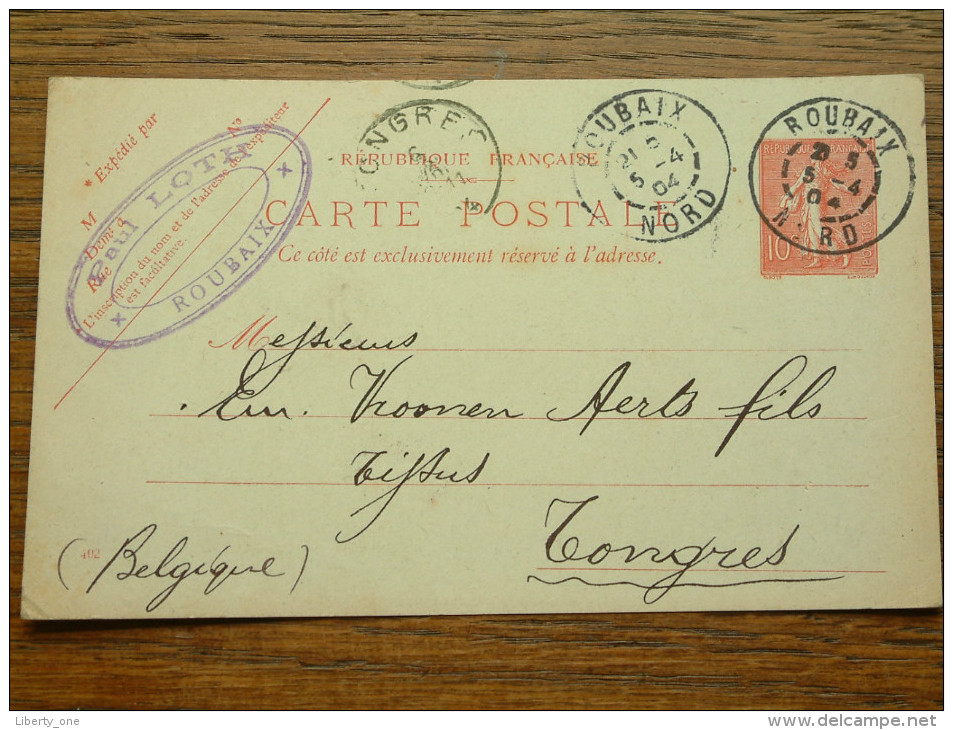 * Expédié par
M
Dem t à
Rue
N°
L'inscription du nom et de l'adresse de l'expéditeur
est facultative.
Paul LOTH
ROUBAIX
TONGRES
11
RÉPUBLIQUE FRANÇAISE
CARTE POSTALE
Ce côté est exclusivement réservé à l'adresse.
ROUBAIX
21
5 -4
04
NORD
ROUBAIX
5 -4
04
NORD
REPUBLIQUE FRANÇAISE
10
POSTES
Messieurs
Em. Vroonen Aerts fils
Tissus
Tongres
(Belgique)
402
Liberty_one
www.delcampe.net